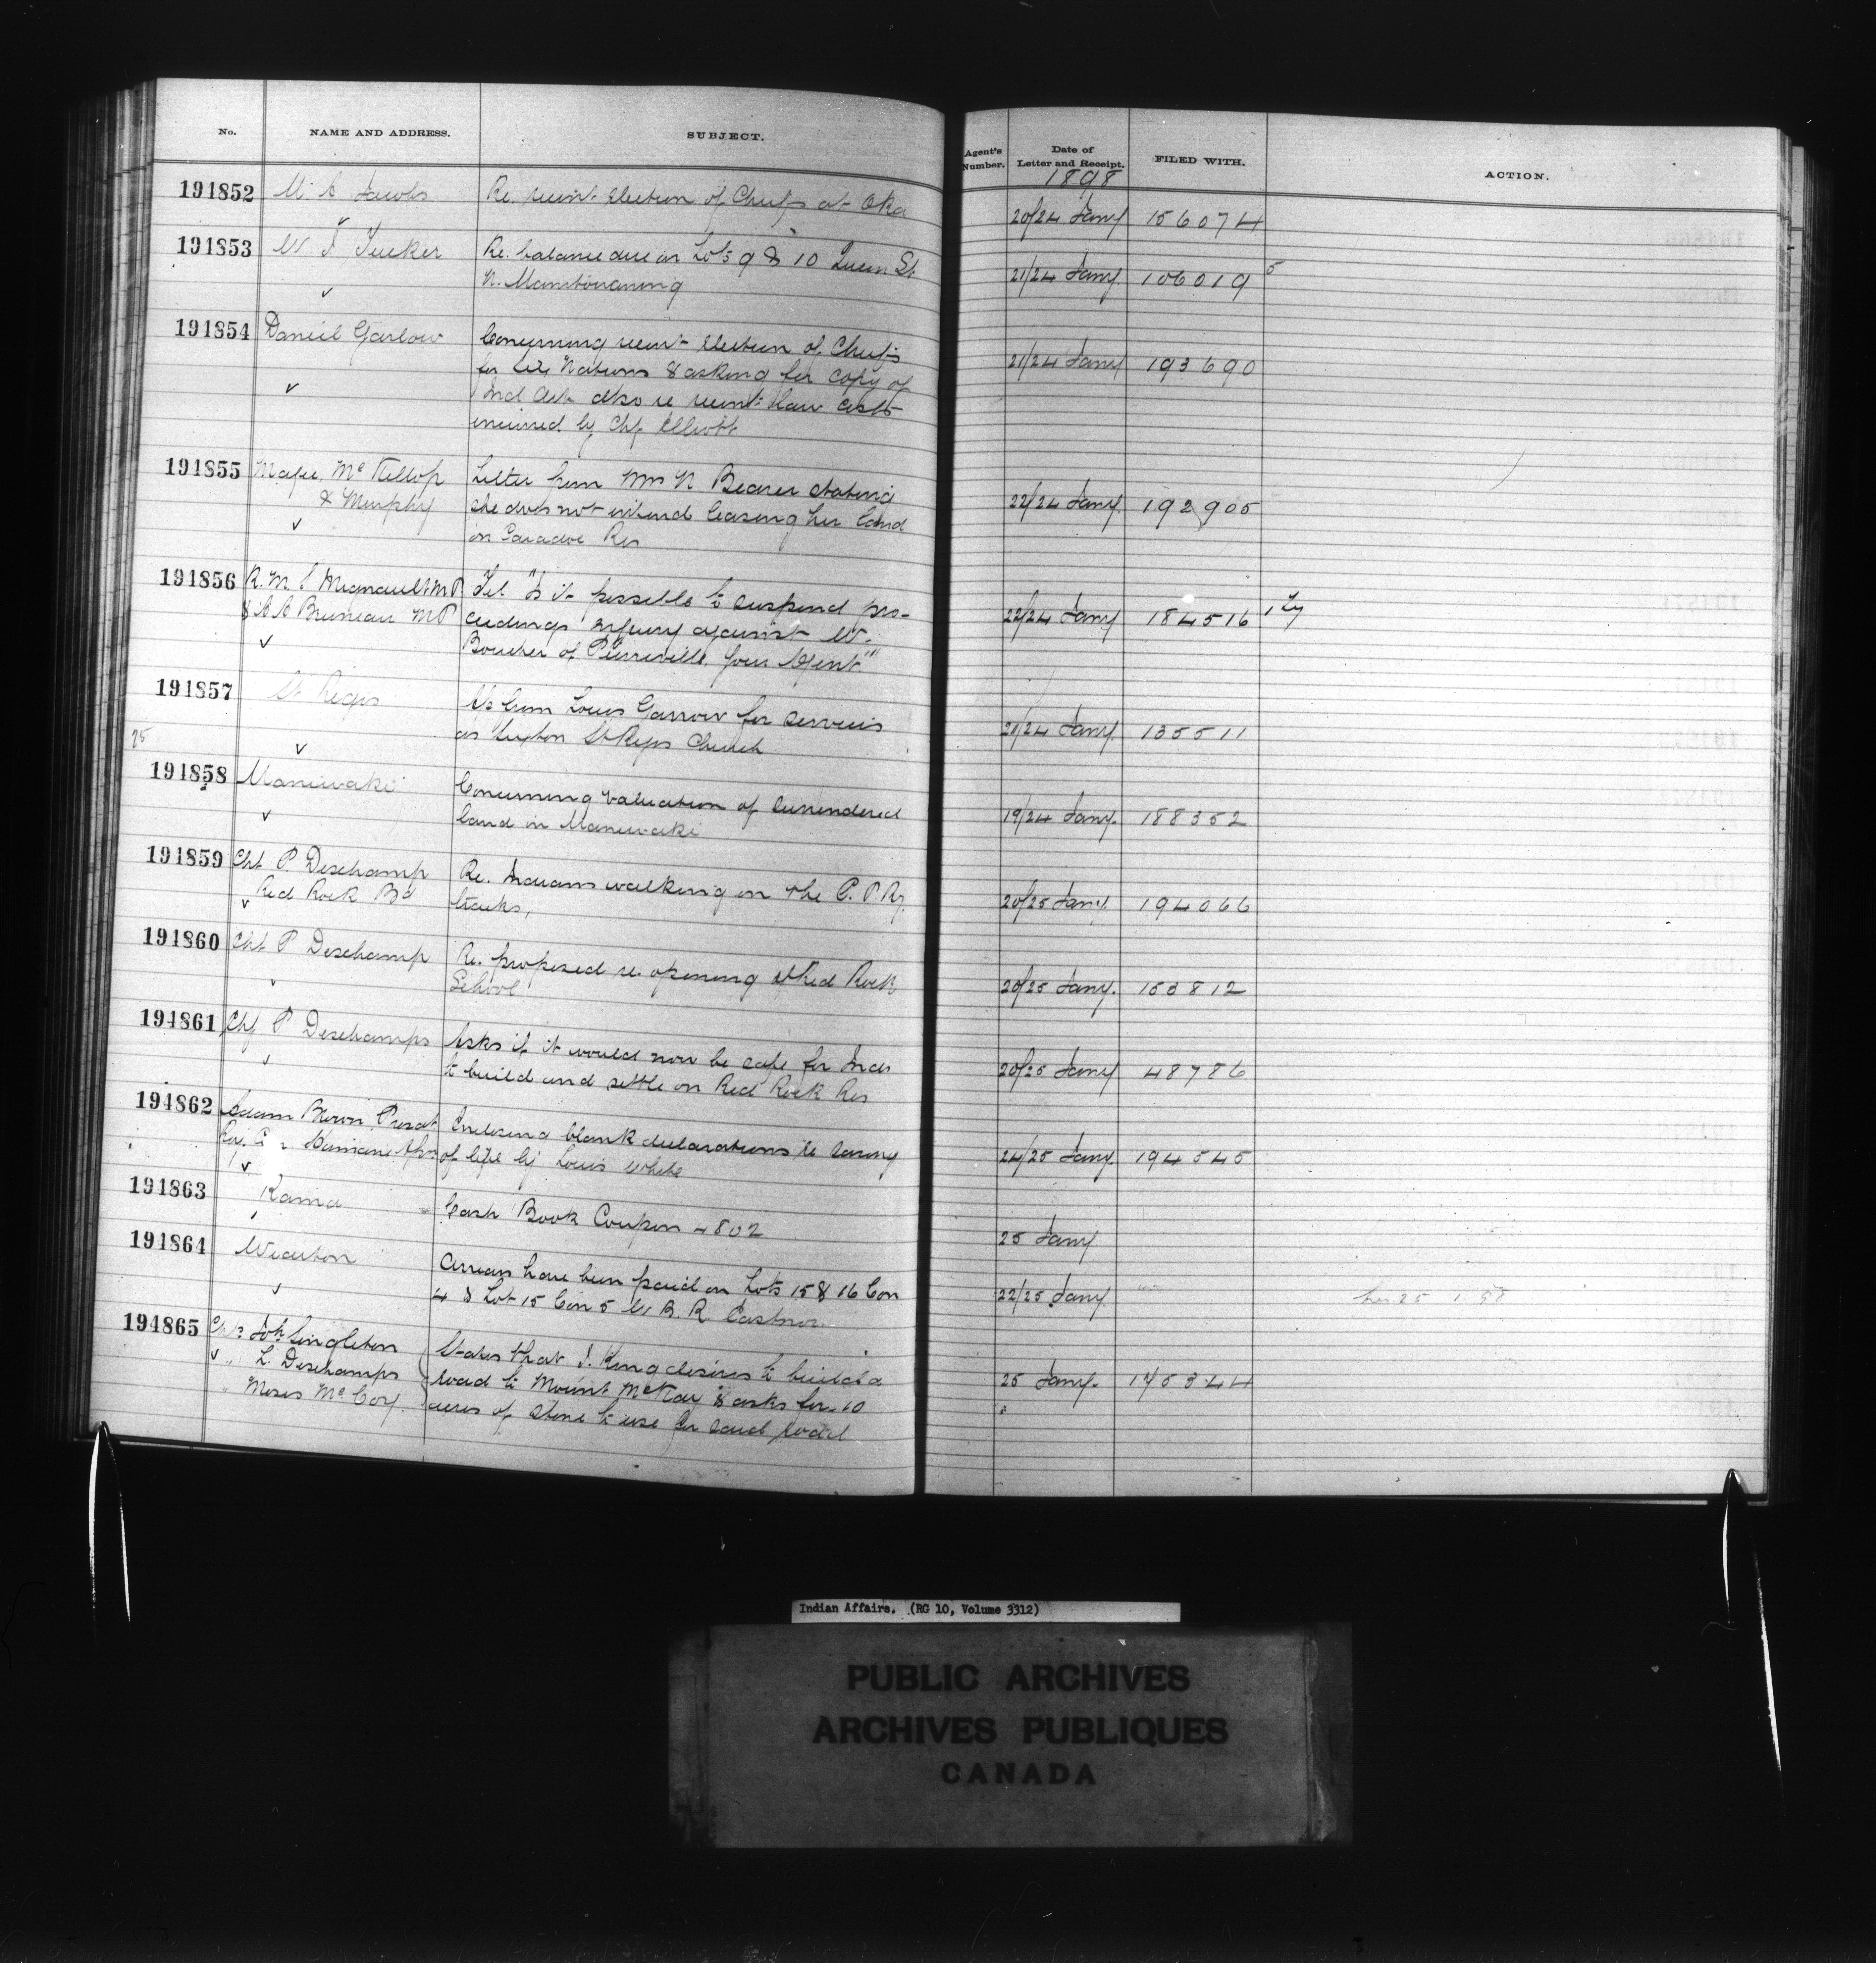 No. NAME AND ADDRESS. SUBJECT. Agent's Number. Date of Letter and Receipt. FILED WITH. ACTION.
1898
191852 M. A. Jacobs Re. recent election of Chiefs at Oka 20/24 Jany 156074
191853 W J Tucker Re. balance due on Lots 9 & 10 Queen St. 21/24 Jany. 106019 5
N. Manitowaning
191854 Daniel Garlow Concerning recent election of Chiefs 21/24 Jany 193690
for Six Nations & asking for copy of
Ind Act also re recent law costs
incurred by Chf Elliott
191855 Mafee, McKellop Letter from Mrs N Beaver stating 22/24 Jany. 192905
& Murphy she does not intend leasing her land
on Caradoc Res
191856 R. M. S. Mignault MP Tel. "Is it possible to suspend pro- 22/24 Jany 184516
& A A Bruneau MP ceedings against W.
Boucher of Pierreville. Your Agent."
191857 St Regis Louis Garrow for services 21/24 Jany. 135511
as Sexton St Regis Church
191858 Maniwaki Concerning valuation of surrendered 19/24 Jany. 188352
land in Maniwaki
191859 Chf. P. Deschamp Re. Indians walking on the C. P. Ry. 20/25 Jany. 194066
Red Rock Bd tracks,
191860 Chf. P Deschamp Re. proposed re. opening of Red Rock 20/25 Jany. 153812
School
191861 Chf P Deschamps Asks if it would now be safe for Inds 20/25 Jany 48786
to build and settle on Red Rock Res
191862 Adam Brown, Presdt Enclosing blank declarations re saving 24/25 Jany. 194545
Humane Assn of life by Louis White
191863 Rama Cash Book Coupon 4802 25 Jany
191864 Wiarton Arrears have been paid on Lots 15 & 16 Con 22/25 Jany.
4 & Lot 15 Con 5 W B. R. Eastnor.
191865 Chfs Joh Singleton States that J. King desires to build a 25 Jany. 145344
" L. Deschamps road to Mount McKay & asks for 10
" Moses McCoy. acres of stone to use for said road
Indian Affairs. (RG 10, Volume 3312)
PUBLIC ARCHIVES
ARCHIVES PUBLIQUES
CANADA